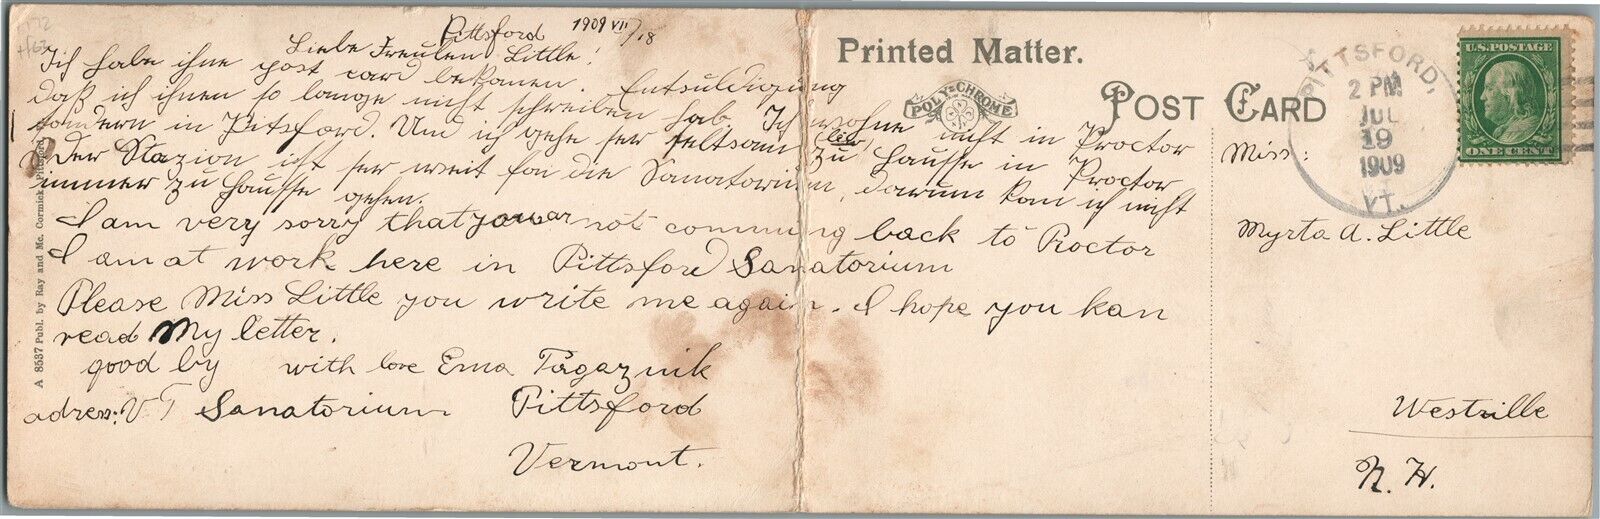 Pittsford 1909 VII/18
Liebe Freulen Little!
Ich habe ihne post card bekomen. Entsuldigung
daß ich ihnen so lange nicht schreiben hab. Ich wohne nicht in Proctor
sondern in Pittsford. Und ich gehe ser seltsam zu Hausse in Proctor
Der Stazion ist ser weit fon die Sanatorium, darum kan ich nicht
immer zu Hausse gehen.
I am very sorry that you ar not comming back to Proctor
I am at work here in Pittsford Sanatorium
Please Miss Little you write me again. I hope you kan
read My letter.
good by with love Ema
adress: VT Sanatorium Pittsford
Vermont.
A 8537 Publ. by Ray and Mc. Cormick, Pittsford
Printed Matter.
POLY-CHROME
POST CARD
PITTSFORD,
2 PM
JUL
19
1909
VT.
U.S. POSTAGE
ONE CENT
Miss:
Myrta A. Little
Westville
N. H.